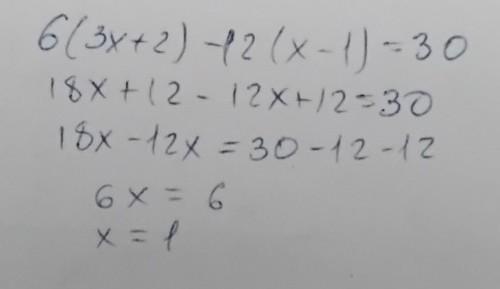 6(3x+2)-12(x-1)=30
18x+12-12x+12=30
18x-12x=30-12-12
6x=6
x=1